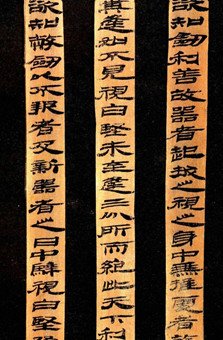 欲知劍利善故器者起拔之視之身中無推處者故
其逢如不見視白堅未至逢三分所而絕此天下利
欲知幣劍以不報者及新器者之日中騂視白堅隨